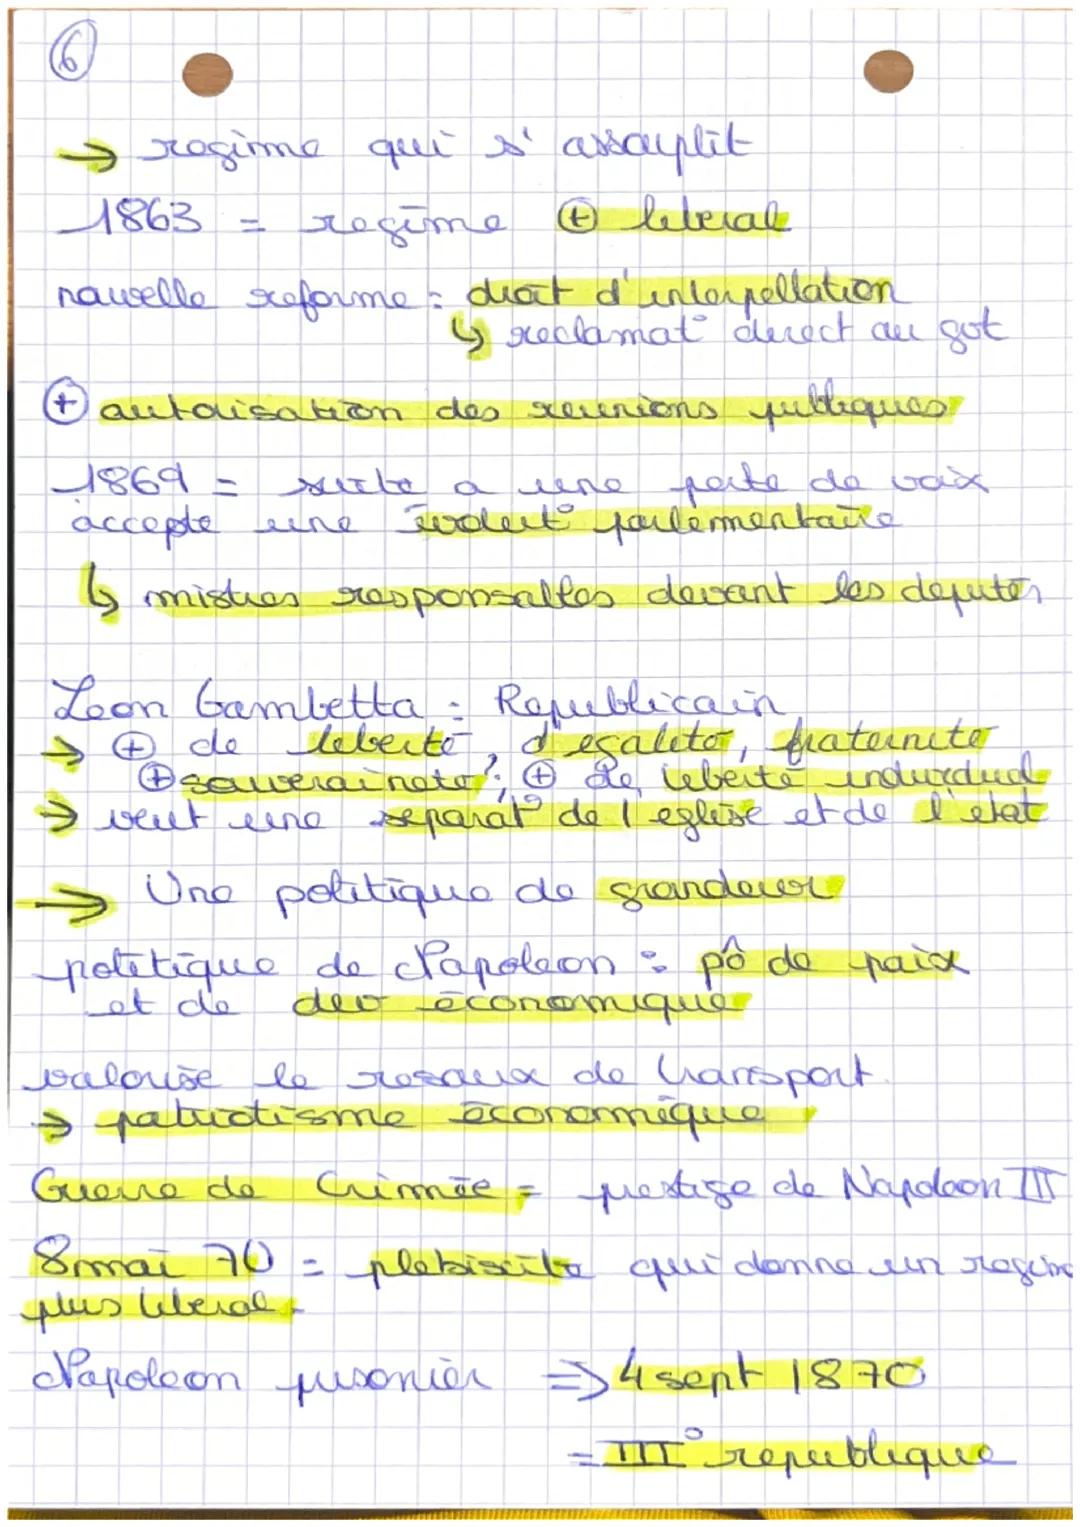 6
→ regime qui s'assouplit
1863 = regime ⊕ liberal
nouvelle reforme = droit d'interpellation
↳ reclamat° direct au gvt
⊕ autorisation des reunions publiques
1869 = suite a une perte de voix
accepte une évolut° parlementaire
↳ mistres responsables devant les députés
Leon Gambetta : Republicain
→ ⊕ de liberté, d'egalité, fraternité
⊕ souveraineté ; ⊕ de liberté individuel
→ veut une séparat° de l'eglise et de l'etat
→ Une politique de grandeur
politique de Napoleon : pô de paix
et de dev économique
valorise le resaux de transport.
→ patriotisme économique
Guerre de Crimée = prestige de Napoleon III
8 mai 70 = plebiscite qui donne un regime
plus liberal.
Napoleon prisonier ⇒ 4 sept 1870
= III° republique